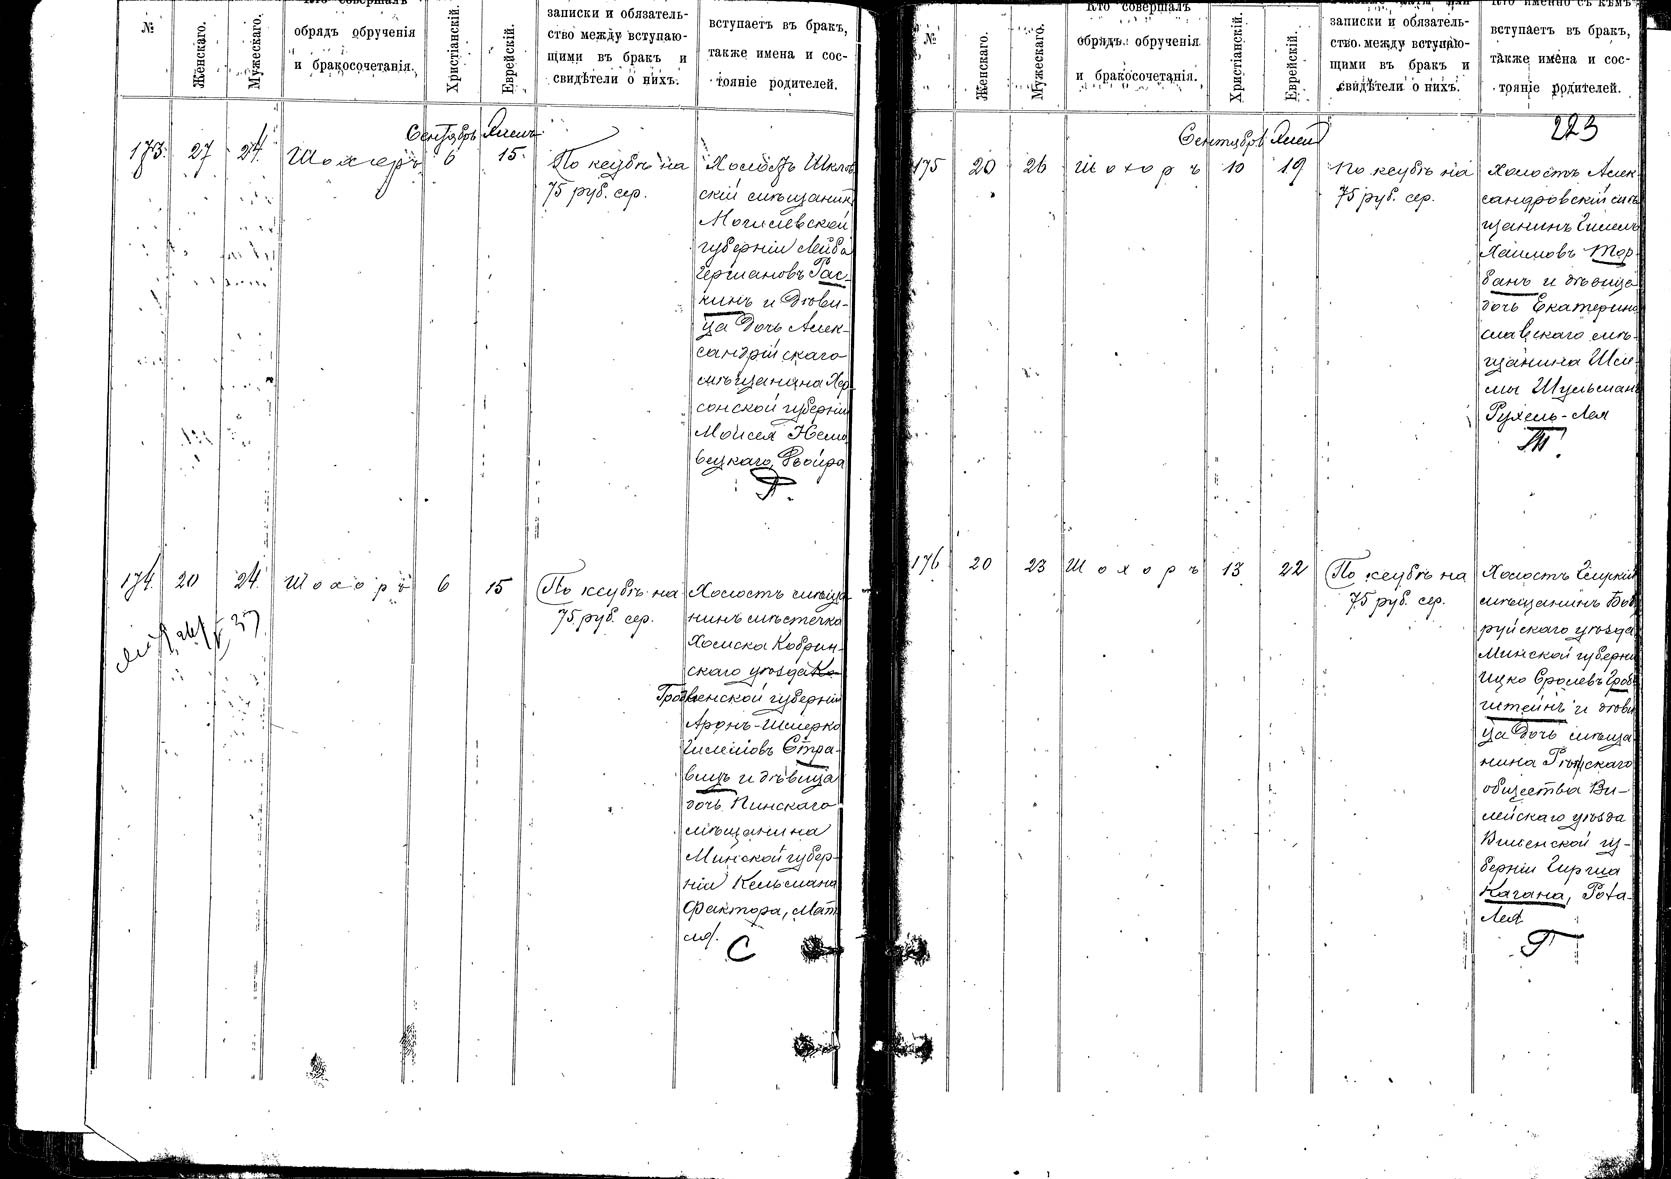 №
Женскаго.
Мужескаго.
Кто совершалъ
обрядъ обрученія
и бракосочетанія.
Христіанскій.
Еврейскій.
записки и обязатель-
ство между вступаю-
щими въ бракъ и
свидѣтели о нихъ.
вступаетъ въ бракъ,
также имена и сос-
тояніе родителей.
Сентябрь
173.
27
24.
Шохоръ
6
15.
По ксубѣ на
75 руб. сер.
Холостъ Шклов
скій мѣщанинъ
Могилевской
губерніи Лейба
Германовъ Рас-
кинъ и Дѣви-
ца Дочь Алек-
сандрійскаго
мѣщанина Хер-
сонской губерніи
Моисея
Двойра
174.
20
24.
Шохоръ
6
15
По ксубѣ на
75 руб. сер.
Холостъ мѣща-
нинъ мѣстечка
Хомска Кобрин-
скаго уѣзда
Гродненской губерніи
Аронъ-Шмерко
Стра-
вицъ и дѣвица
дочь Пинскаго
мѣщанина
Минской губер-
ніи Кельмана
Фактора,
С
№
Женскаго.
Мужескаго.
Кто совершалъ
обрядъ обрученія
и бракосочетанія.
Христіанскій.
Еврейскій.
записки и обязатель-
ство между вступаю-
щими въ бракъ и
свидѣтели о нихъ.
Кто именно съ кѣмъ
вступаетъ въ бракъ,
также имена и сос-
тояніе родителей.
223
Сентябрь
175
20
26
Шохоръ
10
19
По ксубѣ на
75 руб. сер.
Холостъ Алек
сандровскій мѣ
щанинъ
Хаимовъ Тор-
банъ и дѣвица
дочь Екатерино
славскаго мѣ-
щанина Шле-
мы Шульмана
Рухель-Лея
Т.
176
20
23
Шохоръ
13
22
По ксубѣ на
75 руб. сер.
Холостъ
мѣщанинъ Боб
руйскаго уѣзда
Минской губерніи
Ицко Сролевъ
штейнъ и дѣви
ца Дочь мѣща
нина
общества Ви-
лейскаго уѣзда
Виленской гу-
берніи Гирша
Кагана,
Лея
Г